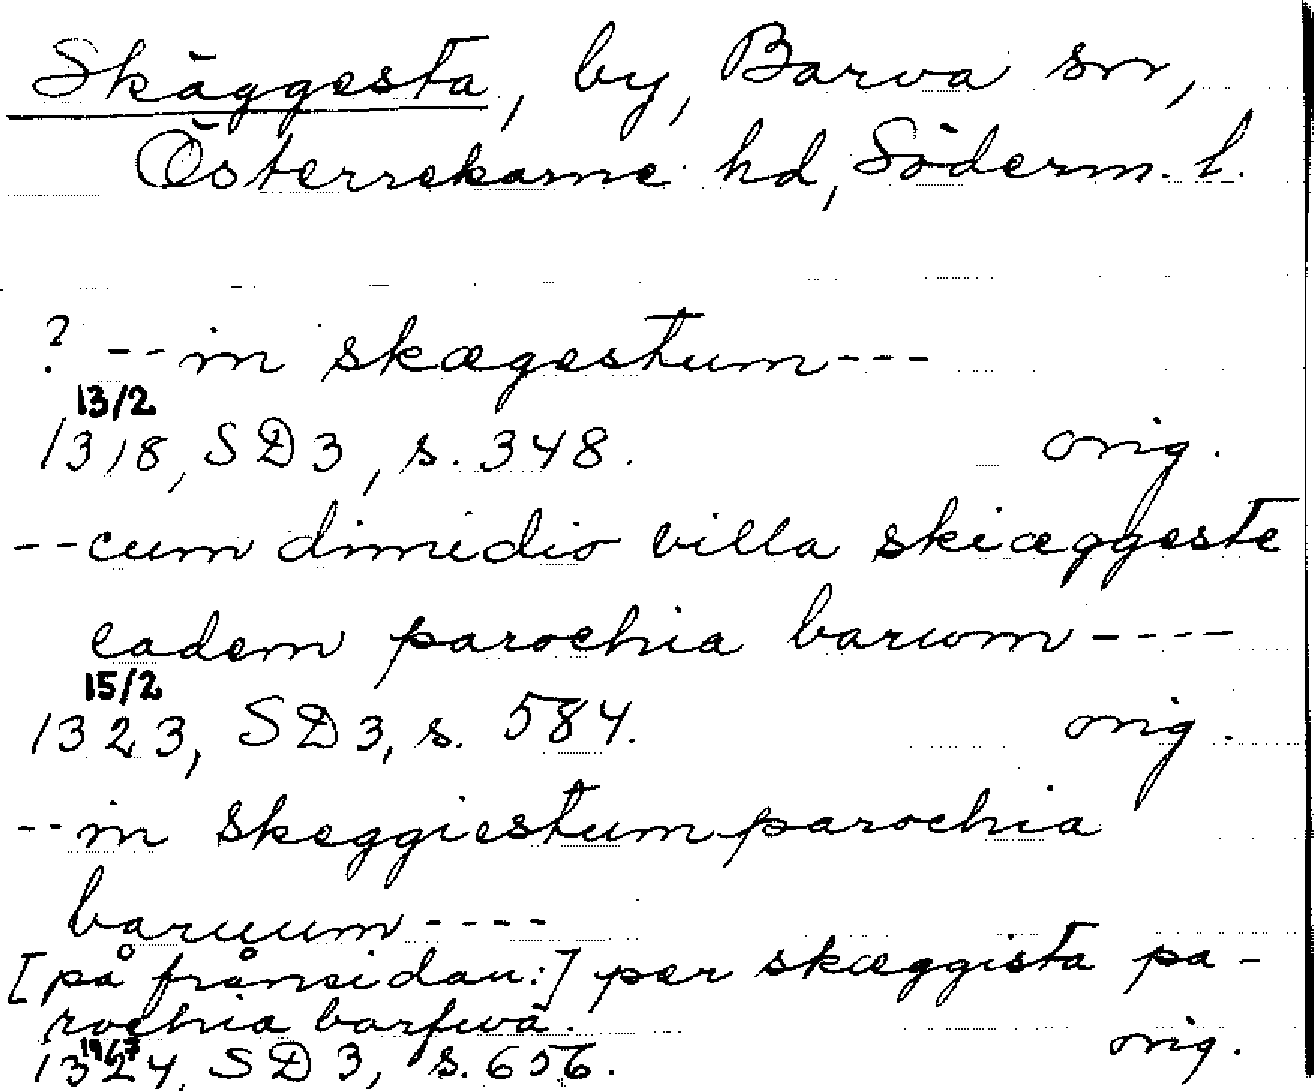 Skäggesta, by, Barva sn,
Österrekarne hd, Söderm. l.
? -- in skægestum ---
13/2
1318, SD 3, s. 348. orig.
-- cum dimidio villa skiæggeste
eadem parochia barwm ----
15/2
1323, SD 3, s. 584. orig.
-- in skeggiestum parochia
baruum ----
[på frånsidan:] per skæggista pa-
rochia barfwa.
1324, SD 3, s. 656. orig.